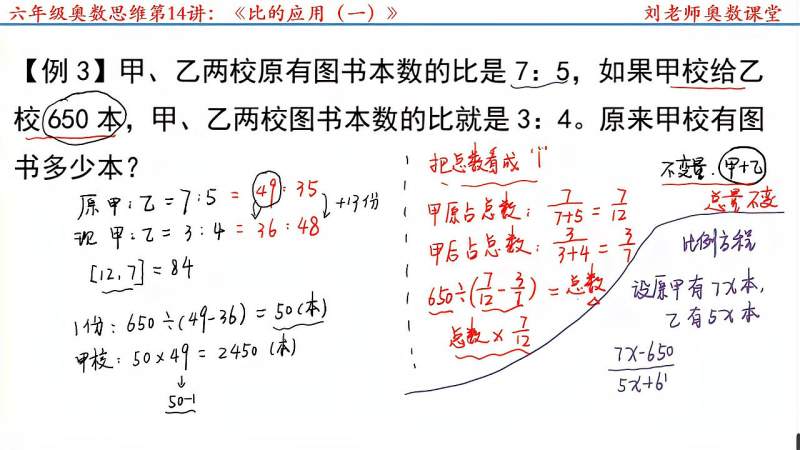 六年级奥数思维第14讲：《比的应用（一）》
刘老师奥数课堂
【例 3】甲、乙两校原有图书本数的比是 7：5，如果甲校给乙
校 650 本，甲、乙两校图书本数的比就是 3：4。原来甲校有图
书多少本？
原 甲：乙 = 7：5 = 49：35
现 甲：乙 = 3：4 = 36：48
+13份
[12,7] = 84
1份：650÷(49-36) = 50(本)
甲校：50×49 = 2450(本)
50-1
把总数看成"1"
甲原占总数：7/(7+5) = 7/12
甲后占总数：3/(3+4) = 3/7
650÷(7/12 - 3/7) = 总数
总数×7/12
不变量：甲+乙
总量不变
比例方程
设原甲有7x本，
乙有5x本
7x-650
5x+6